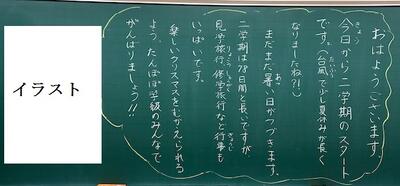 おはようございます
今日から二学期のスタート
です。(台風で少し夏休みが長く
なりましたね?!)
まだまだ暑い日がつづきます。
二学期は78日間と長いですが
見学旅行、修学旅行など行事も
いっぱいです。
楽しいクリスマスをむかえられる
よう、たんぽぽ学級のみんなで
がんばりましょう!!
イラスト